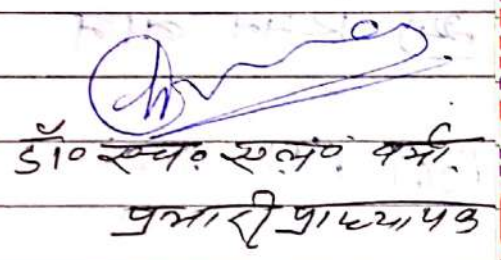 डॉ० एच० एल० वर्मा
प्रभारी प्राध्यापक